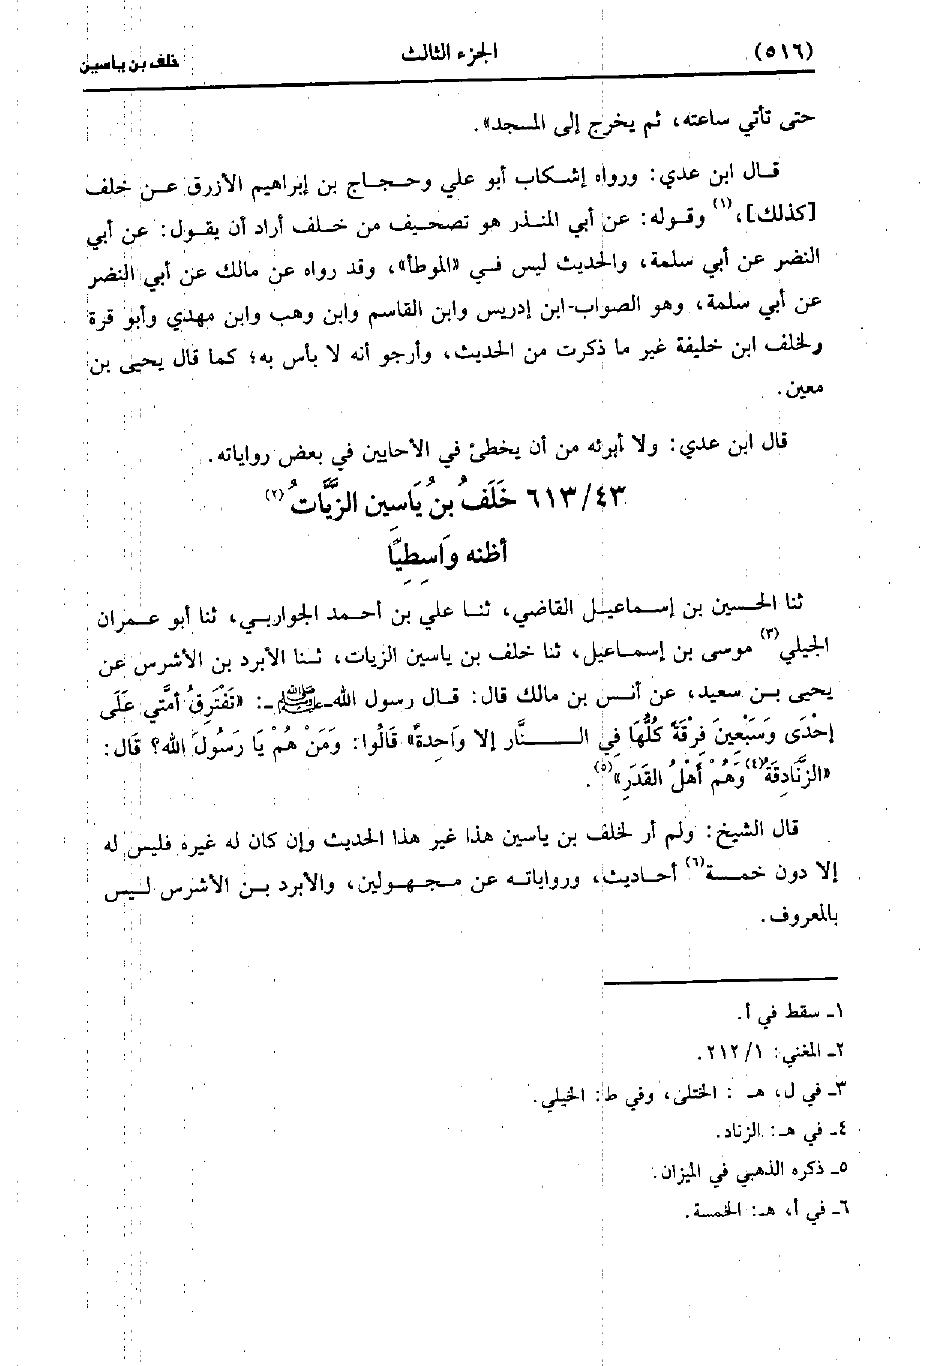 (٥١٦) الجزء الثالث خلف بن ياسين
حتى تأتي ساعته، ثم يخرج إلى المسجد».
قال ابن عدي: ورواه إشكاب أبو علي وحجاج بن إبراهيم الأزرق عن خلف
[كذلك]،(١) وقوله: عن أبي المنذر هو تصحيف من خلف أراد أن يقول: عن أبي
النضر عن أبي سلمة، والحديث ليس في «الموطأ»، وقد رواه عن مالك عن أبي النضر
عن أبي سلمة، وهو الصواب-ابن إدريس وابن القاسم وابن وهب وابن مهدي وأبو قرة
ولخلف ابن خليفة غير ما ذكرت من الحديث، وأرجو أنه لا بأس به؛ كما قال يحيى بن
معين.
قال ابن عدي: ولا أبرئه من أن يخطئ في الأحايين في بعض رواياته.
٦١٣/٤٣ خَلَفُ بنُ يَاسِين الزيَّاتُ(٢)
أظنه واسِطِيًّا
ثنا الحسين بن إسماعيل القاضي، ثنا علي بن أحمد الجواربي، ثنا أبو عمران
الجيلي(٣) موسى بن إسماعيل، ثنا خلف بن ياسين الزيات، ثنا الأبرد بن الأشرس عن
يحيى بن سعيد، عن أنس بن مالك قال: قال رسول الله-ﷺ-: «تَفْتَرِقُ أمَّتي عَلَى
إحْدَى وَسَبْعِينَ فِرْقَةً كُلُّهَا فِي النَّار إلا وَاحدةً» قَالُوا: وَمَنْ هُمْ يَا رَسُولَ الله؟ قَال:
«الزَّنَادِقَةُ(٤)وَهُمْ أهْلُ القَدَرِ»(٥).
قال الشيخ: ولم أر لخلف بن ياسين هذا غير هذا الحديث وإن كان له غيره فليس له
إلا دون خمسة(٦) أحاديث، ورواياته عن مجهولين، والأبرد بن الأشرس ليس
بالمعروف.
١ـ سقط في أ.
٢ـ المغني: ٢١٢/١.
٣ـ في ل، هـ : الختلى، وفي ط: الخيلي.
٤ـ في هـ: الزناد.
٥ـ ذكره الذهبي في الميزان.
٦ـ في أ، هـ: الخمسة.